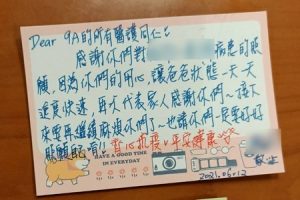 Dear 9A的所有醫護同仁:
感謝你們對 病患的照
顧,因為你們的用心讓爸爸狀態一天天
進度快速 再次代表家人感謝你們~接下
來要再繼續麻煩你們了~也請你們一定要好好
照顧自
HAVE A GOOD TIME
IN EVERYDAY
平安健康
敬上
2021.05.12